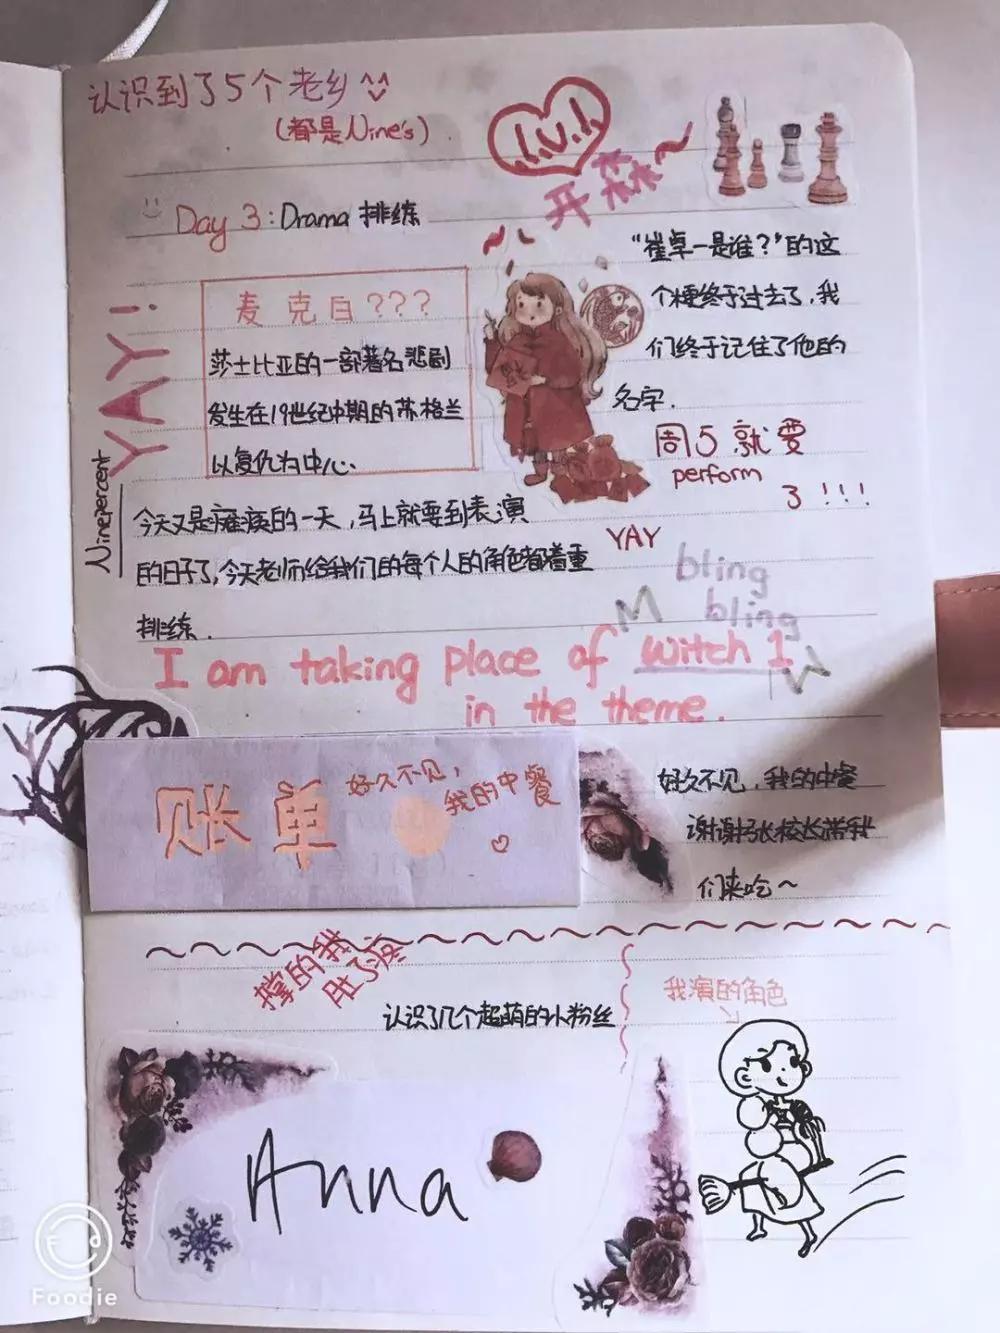 认识到了5个老乡^^
(都是Nine's)
开森~
Day 3: Drama 排练
"崔卓一是谁?"的这
个梗终于过去了,我
们终于记住了他的
名字.
YAY!
麦克白???
莎士比亚的一部著名悲剧
发生在19世纪中期的苏格兰
以复仇为中心.
周5就要
perform
3!!!
YAY
Ninepercent
今天又是瘫痪的一天,马上就要到表演
的日子了,今天老师给我们的每个人的角色都着重
排练.
bling
bling
I am taking place of witch 1
in the theme.
账单
好久不见,
我的中餐
好久不见,我的中餐
谢谢张校长带我
们来吃~
撑的我
肚子疼
认识了几个超萌的小粉丝
我演的角色
Anna
Foodie